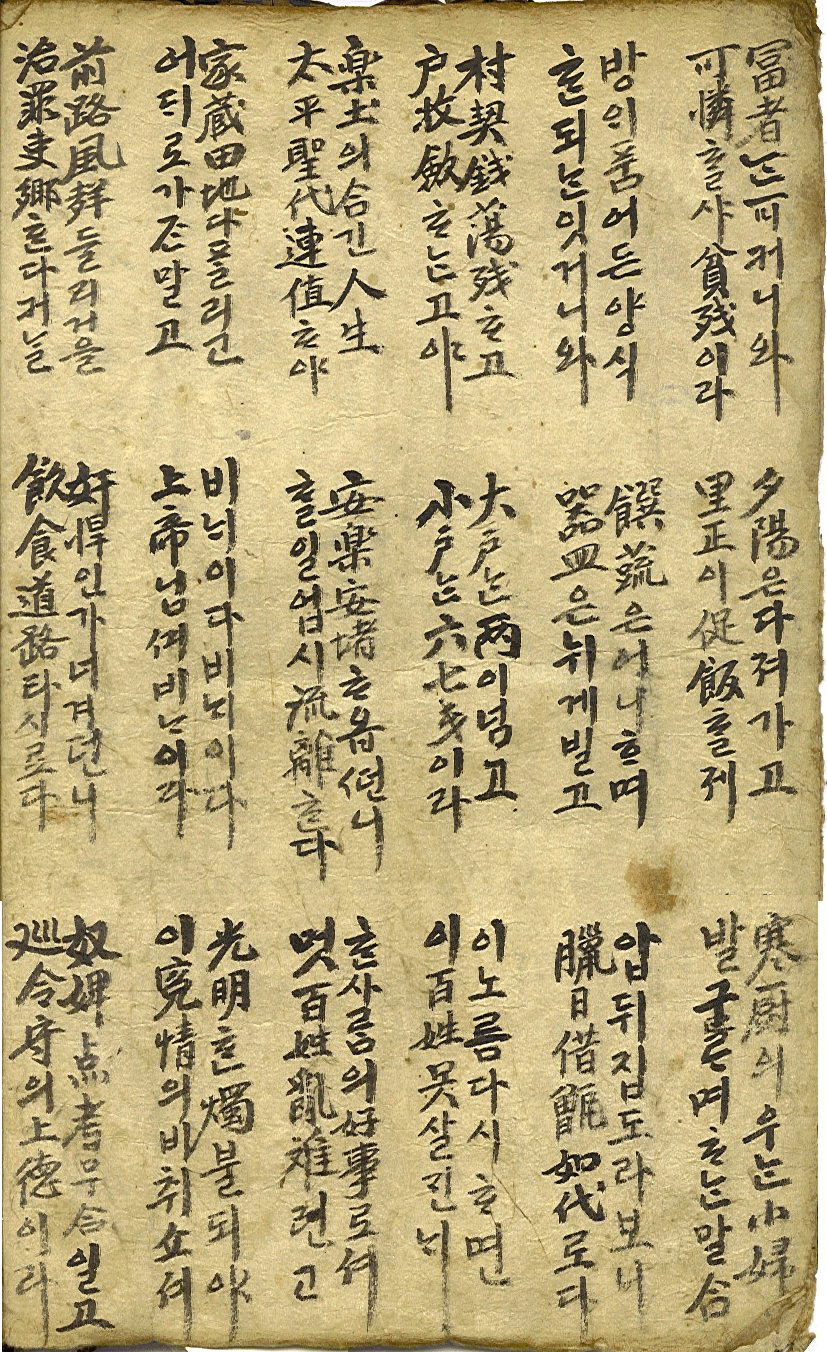 富者는 可커니와
可憐ᄒᆞᆯ샤 貧殘이라
夕陽은 다 져가고
里正이 促飯ᄒᆞᆯ제
寒廚의 우는 小婦
발 구르며 ᄒᆞ는 말合
방의 품어 든 양식
ᄒᆞᆫ되는 잇거니와
饌蔬은 어니ᄒᆞ며
器皿은 뉘게 빌고
압뒤집 도라보니
臘日借甑 如代로다
村契錢 蕩殘ᄒᆞ고
戶收斂 ᄒᆞ는고야
大戶는 兩이 넘고
小戶는 六七戔이라
이 노름 다시 ᄒᆞ면
이 百姓 못살진ᄂᆡ
楽土의 合긴 人生
太平聖代 連値ᄒᆞ야
安楽安堵 ᄒᆞ옵션니
ᄒᆞᆯ일업시 流離ᄒᆞᆫ다
ᄒᆞᆫ사ᄅᆞᆷ의 好事로셔
몃百姓 亂離런고
家蔵田地 다 ᄑᆞᆯ리고
어ᄃᆡ로 가ᄌᆞᆫ 말고
비ᄂᆞ이다 비ᄂᆞ이다
上帝님셔 비ᄂᆞ이다
光明ᄒᆞᆫ 燭불되야
이 寃情의 비취쇼셔
前路風聲 들리거을
治罪吏郷 ᄒᆞᆫ다커늘
奸悍인가 너겨던니
飮食道路 타시로다
奴婢点考 무合일고
巡令守의 上德이라